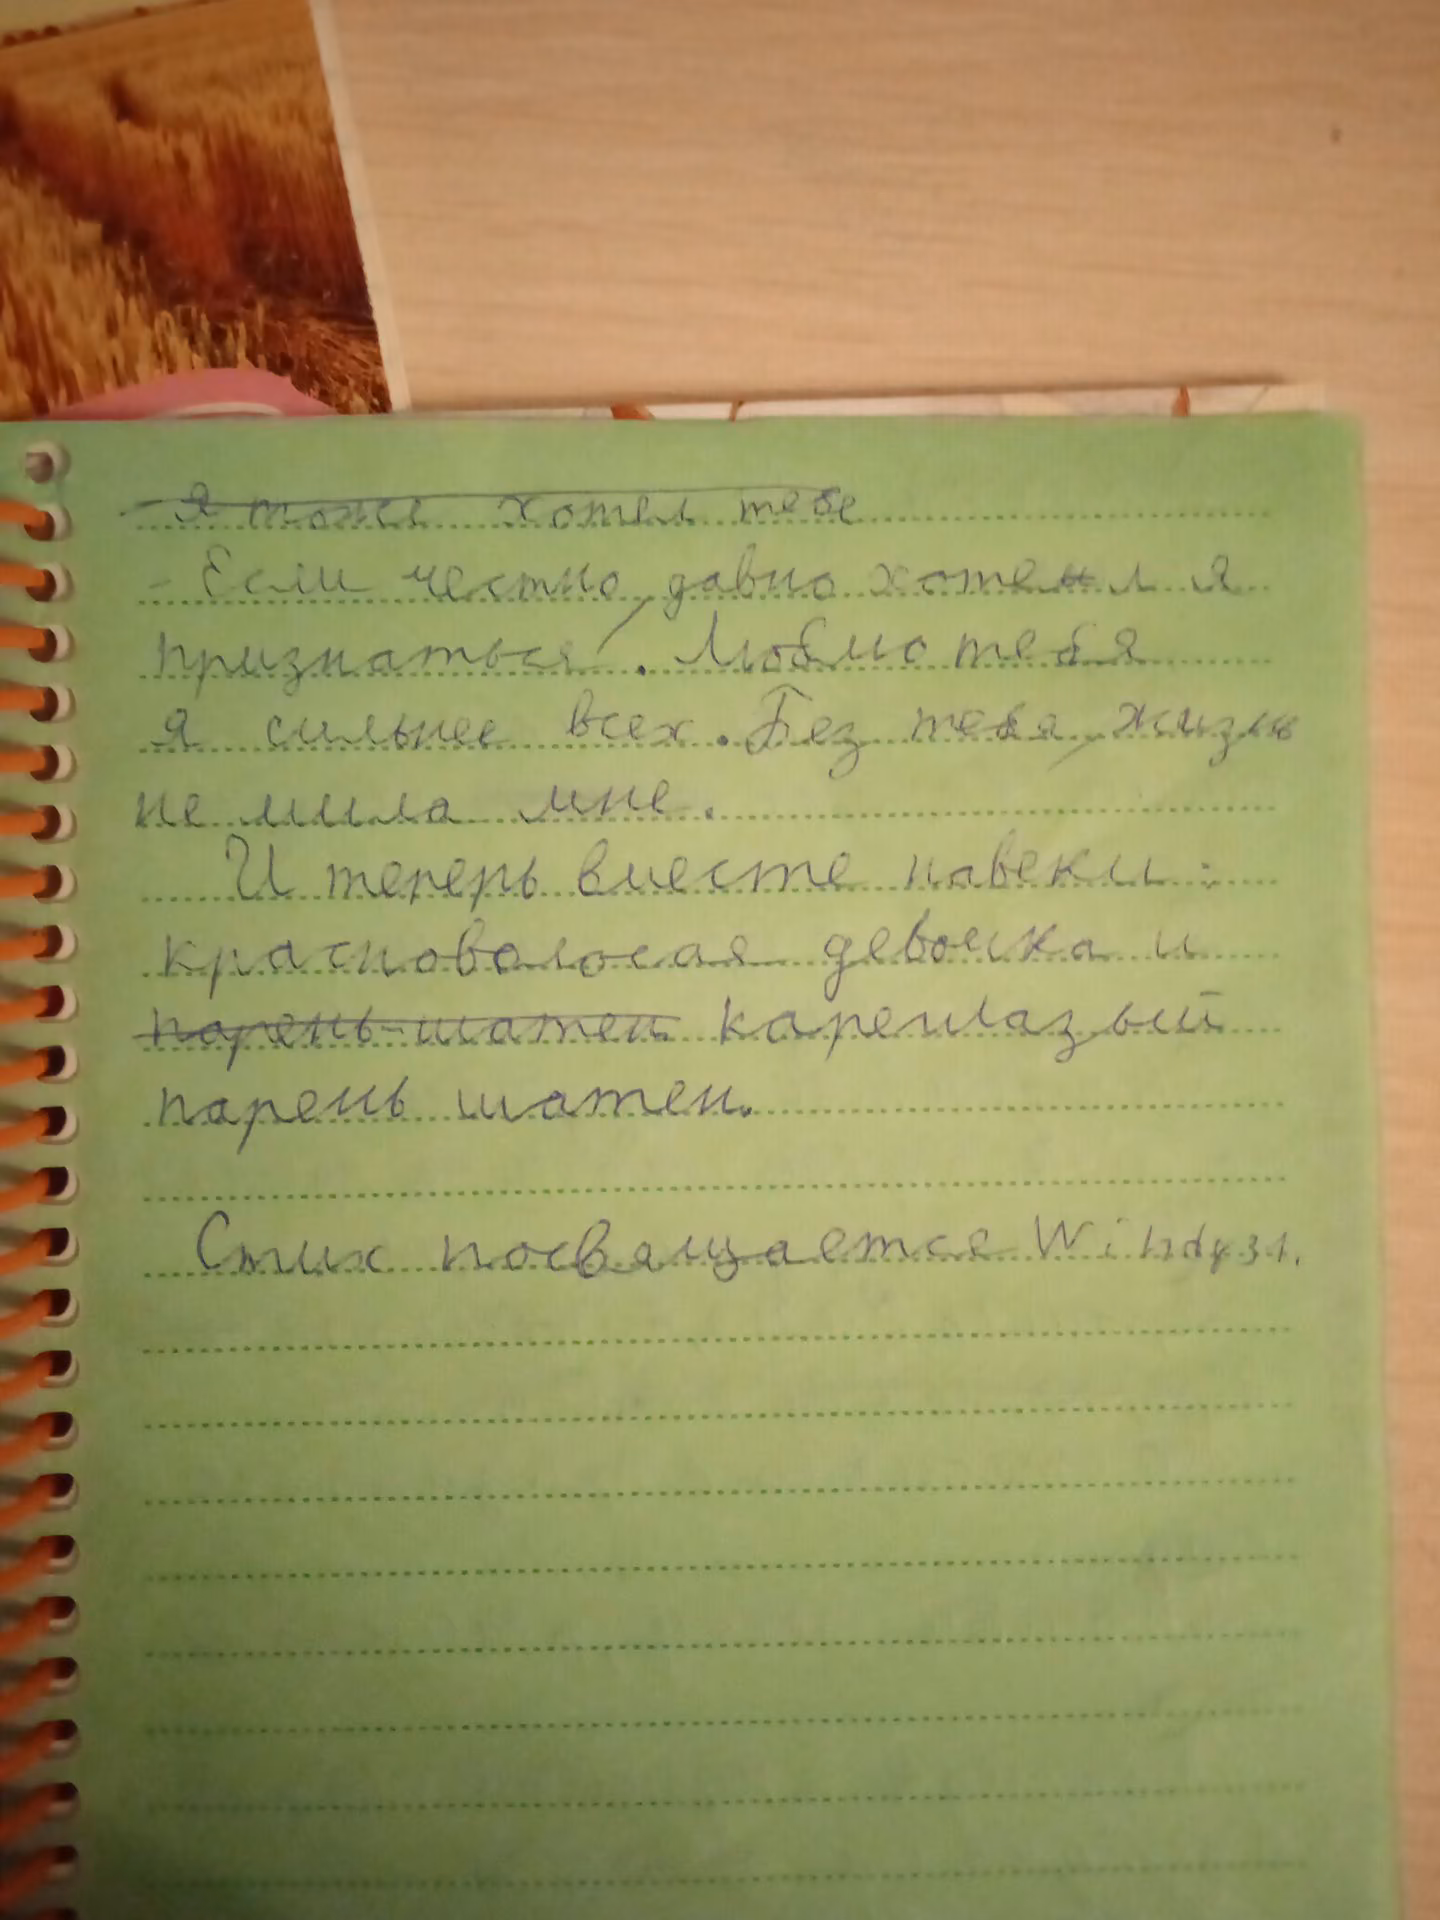 - Я тоже хотел тебе
- Если честно, давно хотел я
признаться. Люблю тебя
я сильнее всех. Без тебя, жизнь
не мила мне.
И теперь вместе навеки:
красноволосая девочка и
парень-шатен кареглазый
парень шатен.
Стих посвящается Windy31.